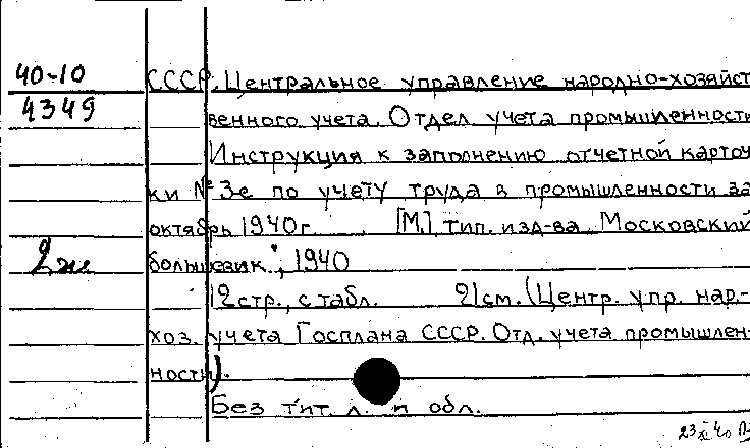 40-10
4349
СССР. Центральное управление народно-хозяйст
венного учета. Отдел учета промышленности
Инструкция к заполнению отчетной карточ
ки № 3-е по учету труда в промышленности за
октябрь 1940г. [М.] тип. изд-ва „Московский
большевик", 1940
2эк
12стр., с табл. 21см. (Центр. упр. нар.-
хоз. учета Госплана СССР. Отд. учета промышлен-
ности).
Без тит. л. и обл.